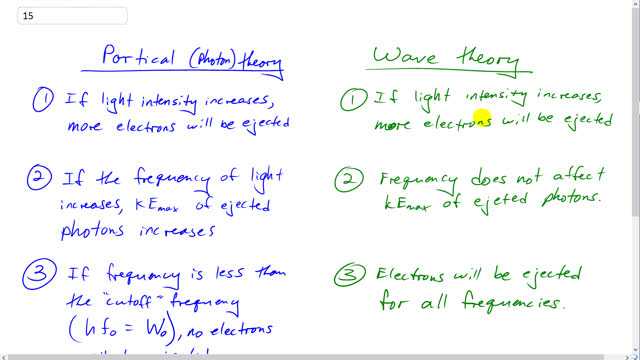 15
Partical (photon) theory
① If light intensity increases,
more electrons will be ejected
② If the frequency of light
increases, KEmax of ejected
photons increases
③ If frequency is less than
the "cutoff" frequency
(hf₀ = W₀), no electrons
Wave theory
① If light intensity increases,
more electrons will be ejected
② Frequency does not affect
KEmax of ejeted photons.
③ Electrons will be ejected
for all frequencies.